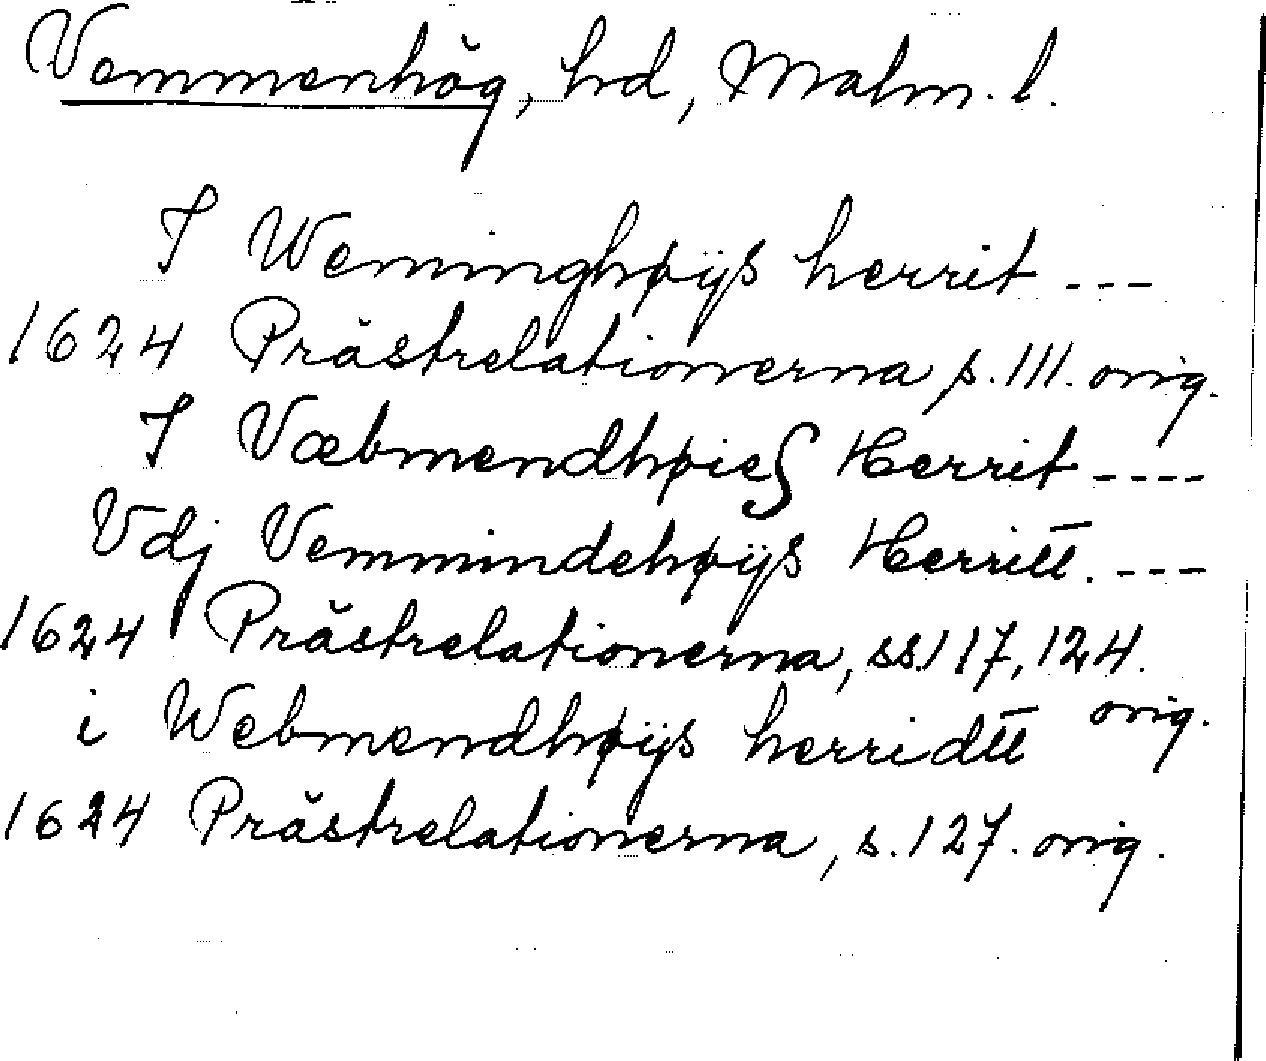 Vemmenhög, hd, Malm. l.
I Wemminghøÿs herrit ---
1624 Prästrelationerna s. 111. orig.
I Væbmendhøies Herrit ----
Vdj Vemmindehøÿs Herritt. ---
1624 Prästrelationerna, ss. 117, 124.
orig.
i Webmendhøÿs herridtt
1624 Prästrelationerna, s. 127. orig.